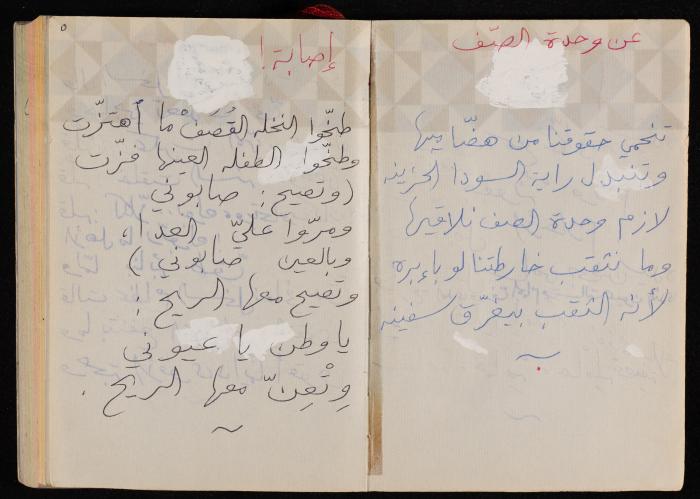 عن وحدة الصّف
تنحمي حقوقنا من هضّاميها
وتنبدل راية السودا الحزينه
لازم وحدة الصف نلاقيها
وما ننثقب خارطتنا لو بإبره
لأنه الثقب بيغرّق سفينه
٥
إصابة!
طخّوا النخله القُصَفْ ما اهتزّت
وطخّوا الطفله العنها فزّت
(وتصيح: صابوني
ومرّوا عليّ العدا،
وبالعين صابوني)
وتصيح معها الريح:
يا وطن يا عيوني
وِتْعِنّ معها الريح.